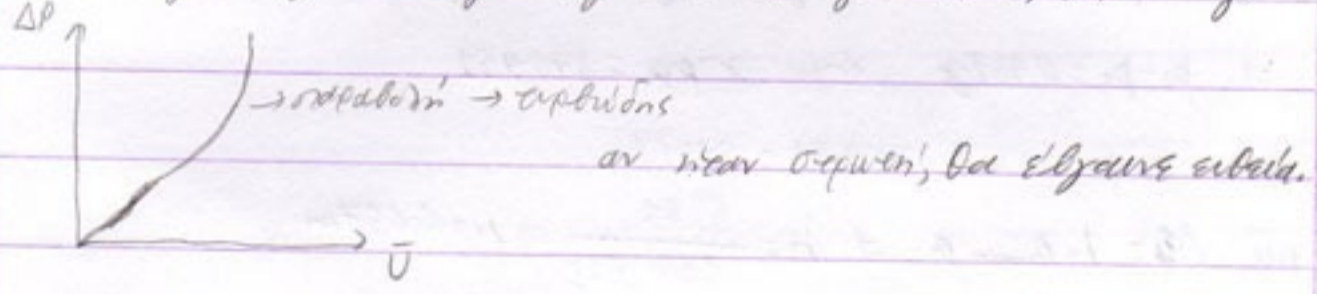 ΔP
→ παραβολή → τυρβώδης
αν ήταν στρωτή, θα έβγαινε ευθεία.
Ū